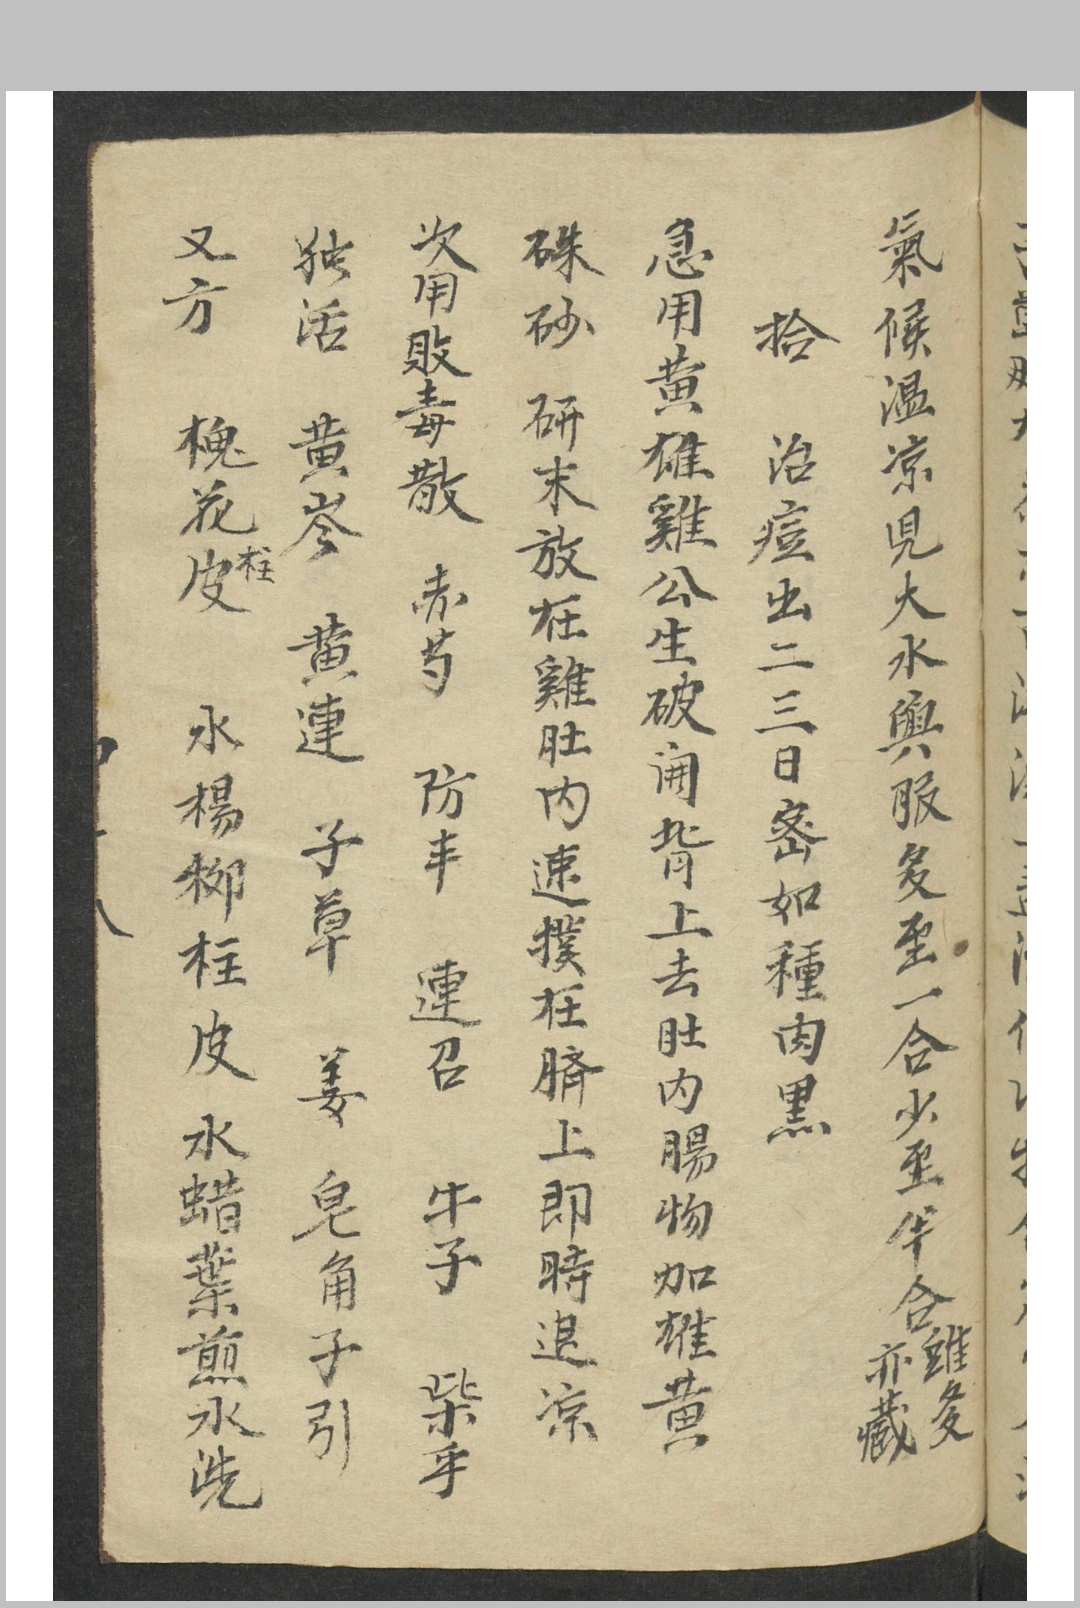 氣候温凉児大水與服多至一合少至半合 雖多亦藏
拾 治痘出二三日密如種肉黑
急用黄雄雞公生破開背上去肚内腸物加雄黄
硃砂 研末放在雞肚内速撲在臍上即時退凉
次用敗毒散 赤芍 防丰 連召 牛子 柴乎
独活 黄岑 黄連 子草 姜 皂角子引
又方 槐花柱皮 水楊柳柱皮 水蜡葉煎水洗